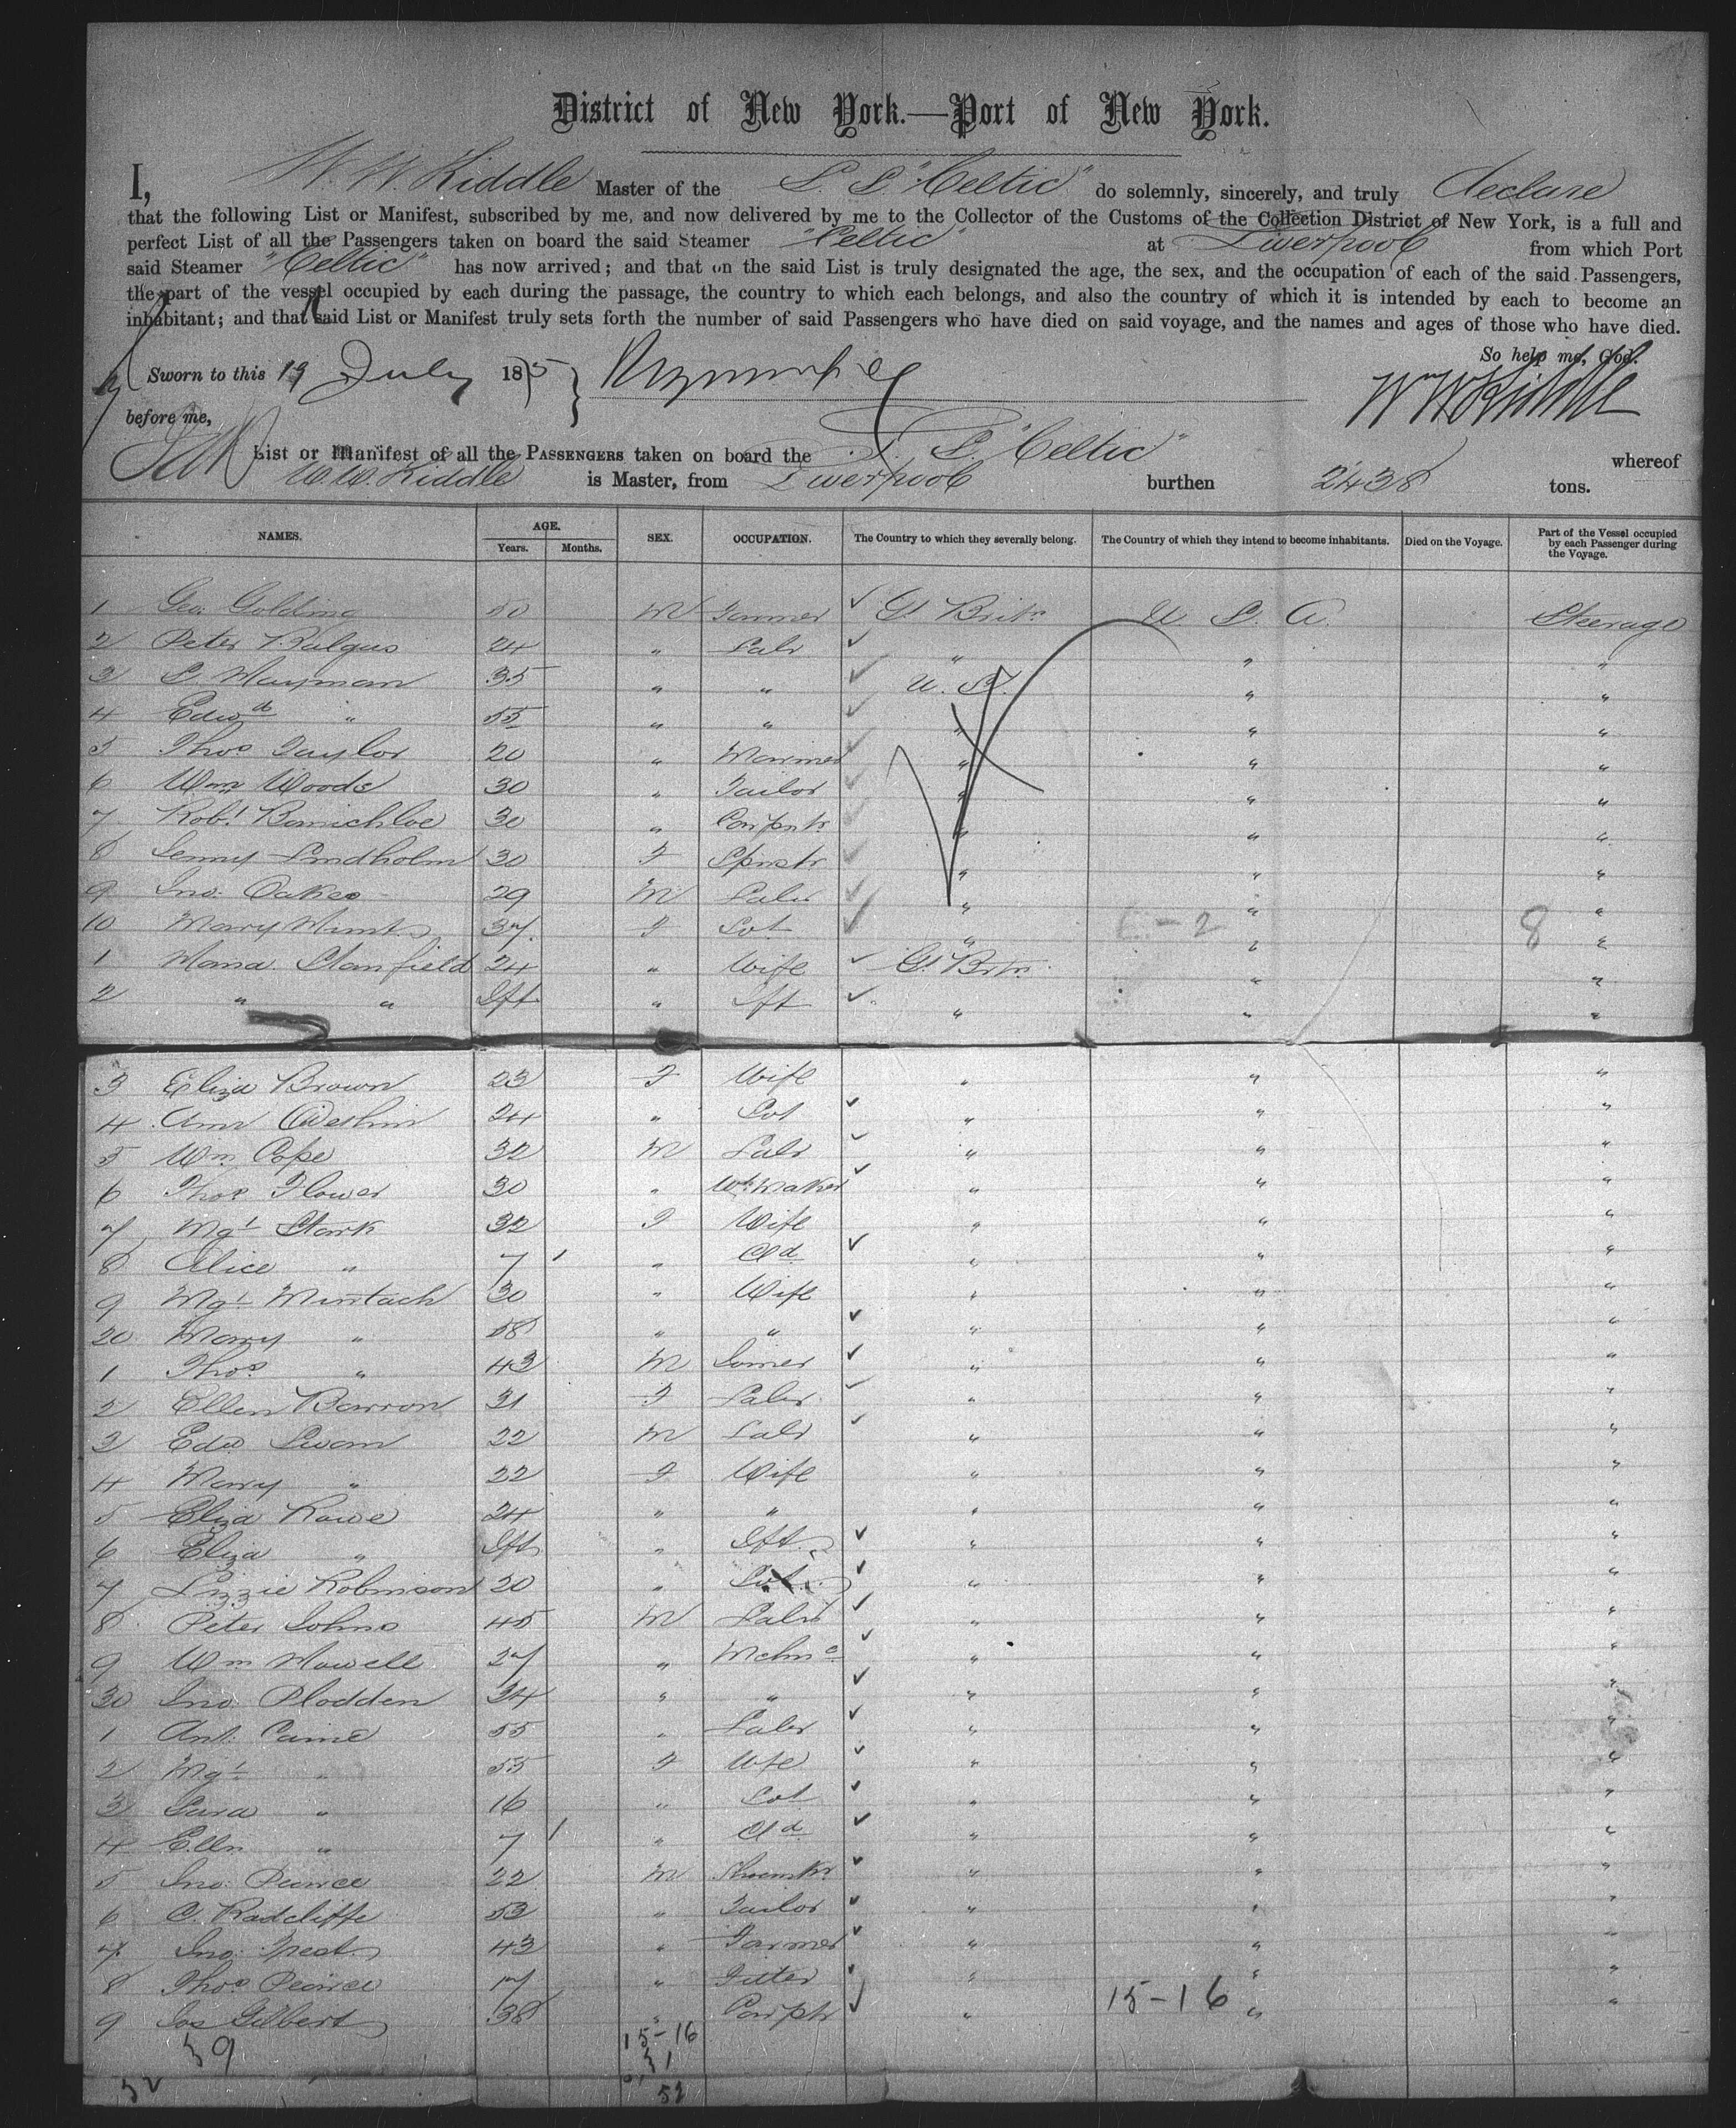 District of New York.—Port of New York.
I, W. W. Kiddle Master of the S. S. "Celtic" do solemnly, sincerely, and truly declare
that the following List or Manifest, subscribed by me, and now delivered by me to the Collector of the Customs of the Collection District of New York, is a full and
perfect List of all the Passengers taken on board the said Steamer "Celtic" at Liverpool from which Port
said Steamer "Celtic" has now arrived; and that on the said List is truly designated the age, the sex, and the occupation of each of the said Passengers,
the part of the vessel occupied by each during the passage, the country to which each belongs, and also the country of which it is intended by each to become an
inhabitant; and that said List or Manifest truly sets forth the number of said Passengers who have died on said voyage, and the names and ages of those who have died.
So help me, God.
Sworn to this 19 July 1875 } W W Kiddle
before me,
List or Manifest of all the PASSENGERS taken on board the S. S. "Celtic" whereof
W. W. Kiddle is Master, from Liverpool burthen 2438 tons.
NAMES. AGE. Years. Months. SEX. OCCUPATION. The Country to which they severally belong. The Country of which they intend to become inhabitants. Died on the Voyage. Part of the Vessel occupied by each Passenger during the Voyage.
1 Geo. Golding 50 M Farmer G. Britn U. S. A. Steerage
2 Peter 24 " Labr " " "
3 S. Wayman 35 " " U. S. " "
4 Edwd " 55 " " " " "
5 Thos Taylor 20 " " " "
6 Wm Woods 30 " Tailor " " "
7 Robt 30 " Carpntr " " "
8 Jenny Lindholm 30 F Spnstr " " "
9 Jno. Oakes 29 M Labr " " "
10 Mary 37 F " " "
1 Maria Stanfield 24 " Wife G. Britn " "
2 " " Ift " Ift " " "
3 Eliza Brown 23 F Wife " " "
4 Ann 24 " " " "
5 Wm Cope 32 M Labr " " "
6 Thos Flower 30 " " " "
7 Mgt Stark 32 F Wife " " "
8 Alice " 7 " Cld " " "
9 Mgt 30 " Wife " " "
20 Mary " 58 " " " " "
1 Thos " 43 M Joiner " " "
2 Ellen Barron 31 F Labr " " "
3 Edw Swam 22 M Labr " " "
4 Mary " 22 F Wife " " "
5 Eliza Rowe 24 " " " " "
6 Eliza " Ift " Ift " " "
7 Lizzie Robinson 20 " " " "
8 Peter Johns 45 M Labr " " "
9 Wm Howell 27 " Mchnc " " "
30 Jno. Plodden 34 " " " " "
1 Ant. Caine 55 " Labr " " "
2 Mgt " 55 F Wfe " " "
3 Sara " 16 " " " "
4 Elln " 7 " Cld " " "
5 Jno. Pearce 22 M " " "
6 C. Radcliffe 53 " Tailor " " "
7 Jno. 43 " Farmer " " "
8 Thos Pearce 17 " Fitter " " "
9 Jos Gilbert 38 " Carptr " " "
8
15-16
39
15-16
52